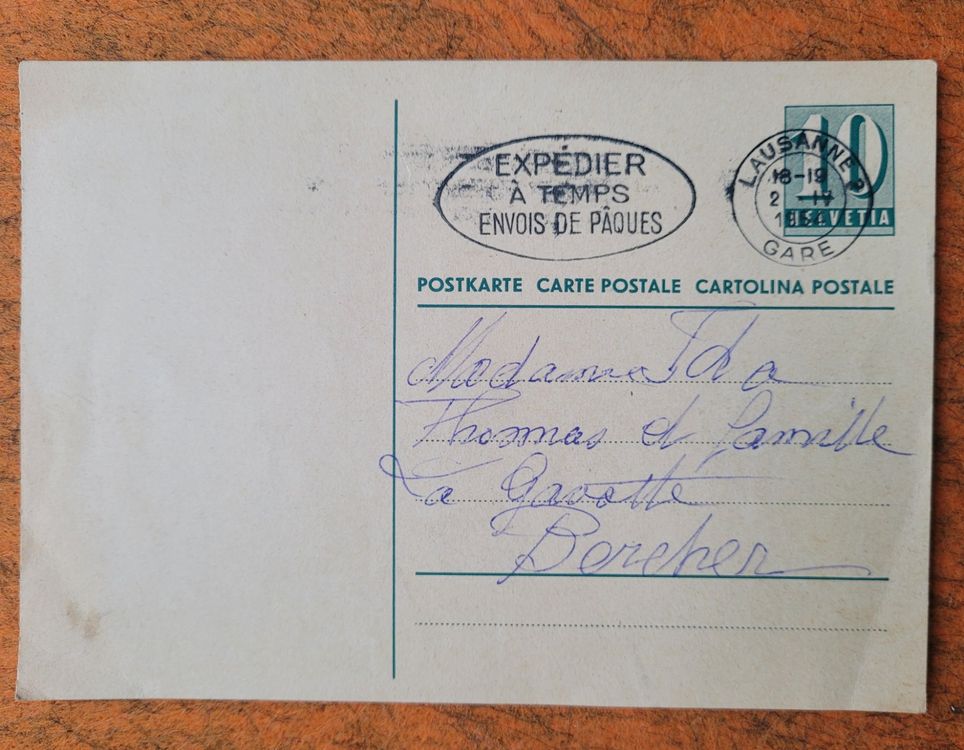 EXPÉDIER
À TEMPS
ENVOIS DE PÂQUES
LAUSANNE
18-19
2 -IV
GARE
10
HELVETIA
POSTKARTE CARTE POSTALE CARTOLINA POSTALE
Madame Ida
Thomas et famille
La Gavotte
Bercher